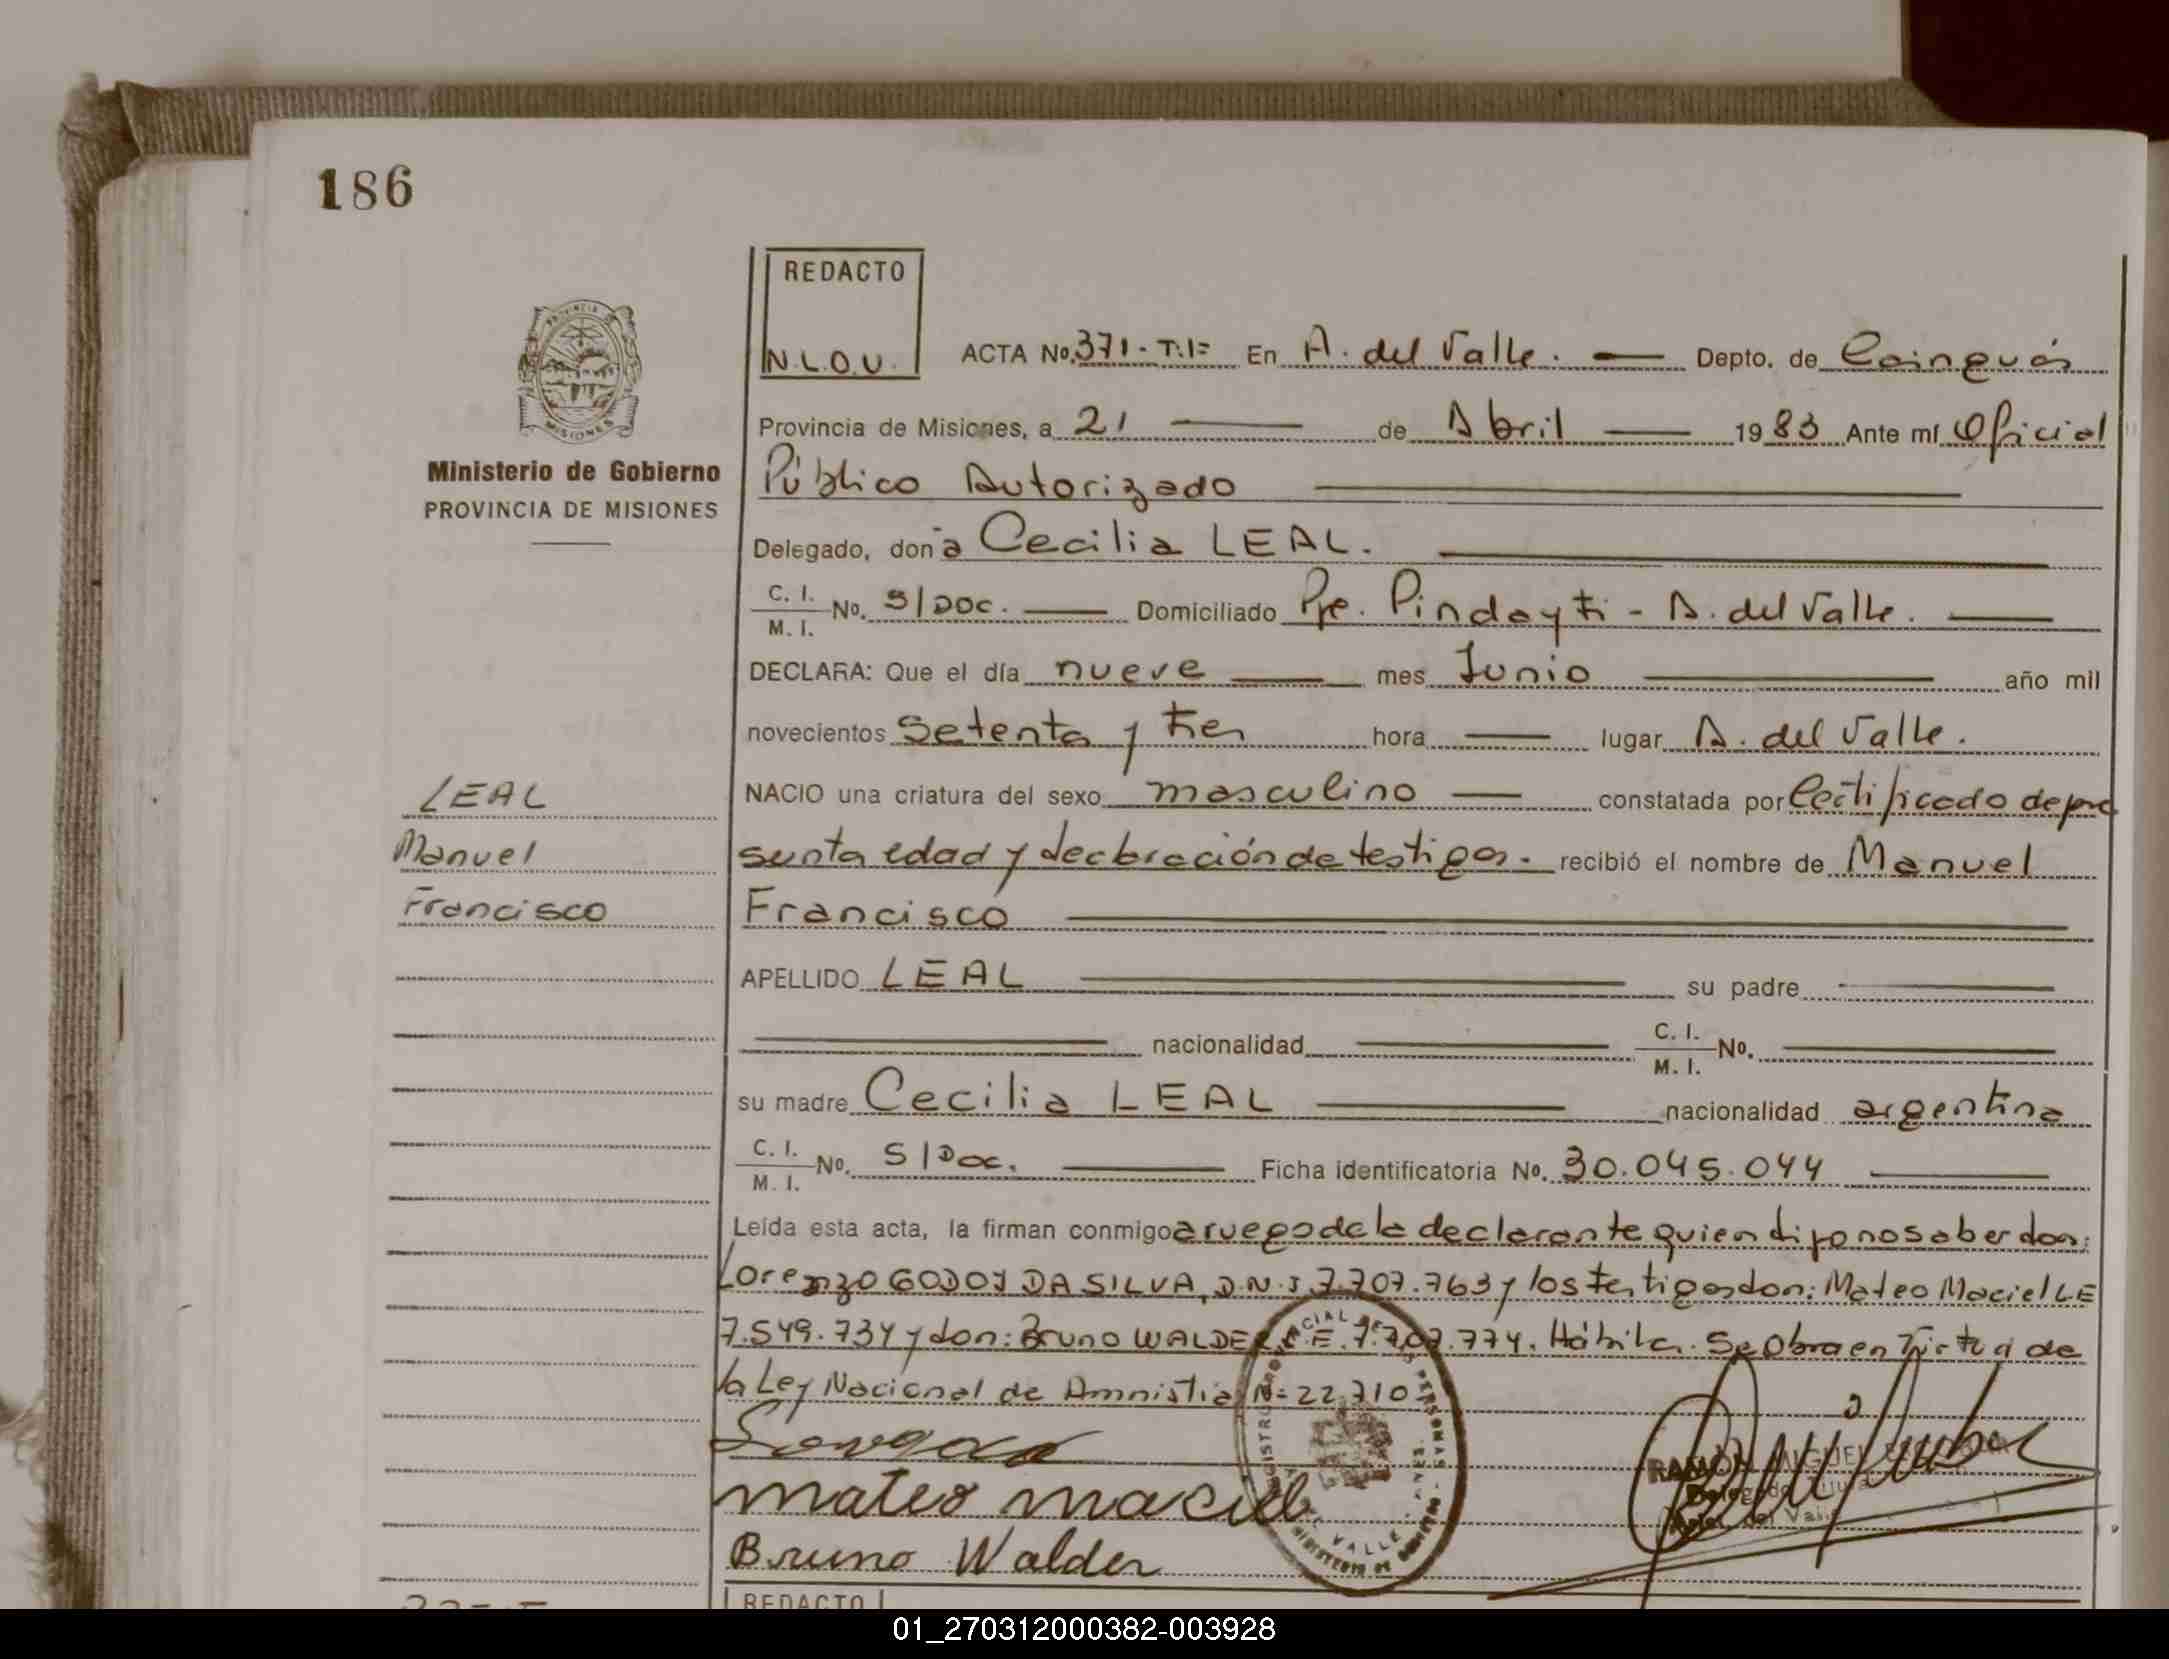 186
REDACTO
N.L.O.U.
PROVINCIA DE
MISIONES
Ministerio de Gobierno
PROVINCIA DE MISIONES
ACTA No. 371-T.I= En A. del Valle. Depto. de Cainguás
Provincia de Misiones, a 21 de Abril 1983 Ante mí Oficial
Público Autorizado
Delegado, don a Cecilia LEAL.
C. I. / M. I. No. S/Doc. Domiciliado Pje. Pindayti - A. del Valle.
DECLARA: Que el día nueve mes Junio año mil
novecientos setenta y tres hora lugar A. del Valle.
LEAL
Manuel
Francisco
NACIO una criatura del sexo masculino constatada por Certificado de pre
sunta edad y declaración de testigos. recibió el nombre de Manuel
Francisco
APELLIDO LEAL su padre
nacionalidad C. I. / M. I. No.
su madre Cecilia LEAL nacionalidad argentina
C. I. / M. I. No. S/Doc. Ficha identificatoria No. 30.045.044
Leída esta acta, la firman conmigo a ruego de la declarante quien dijo no saber don:
Lorenzo GODOY DA SILVA, D.N.I 7.707.763 y los testigos don: Mateo Maciel LE
7.549.734 y don: Bruno WALDER L.E. 7.707.774. Hábiles. Se Obra en Virtud de
la Ley Nacional de Amnistia N= 22.710
mateo maciel
Bruno Walder
RAMON MIGUEL
Delegado
VALLE
REDACTO
01_270312000382-003928